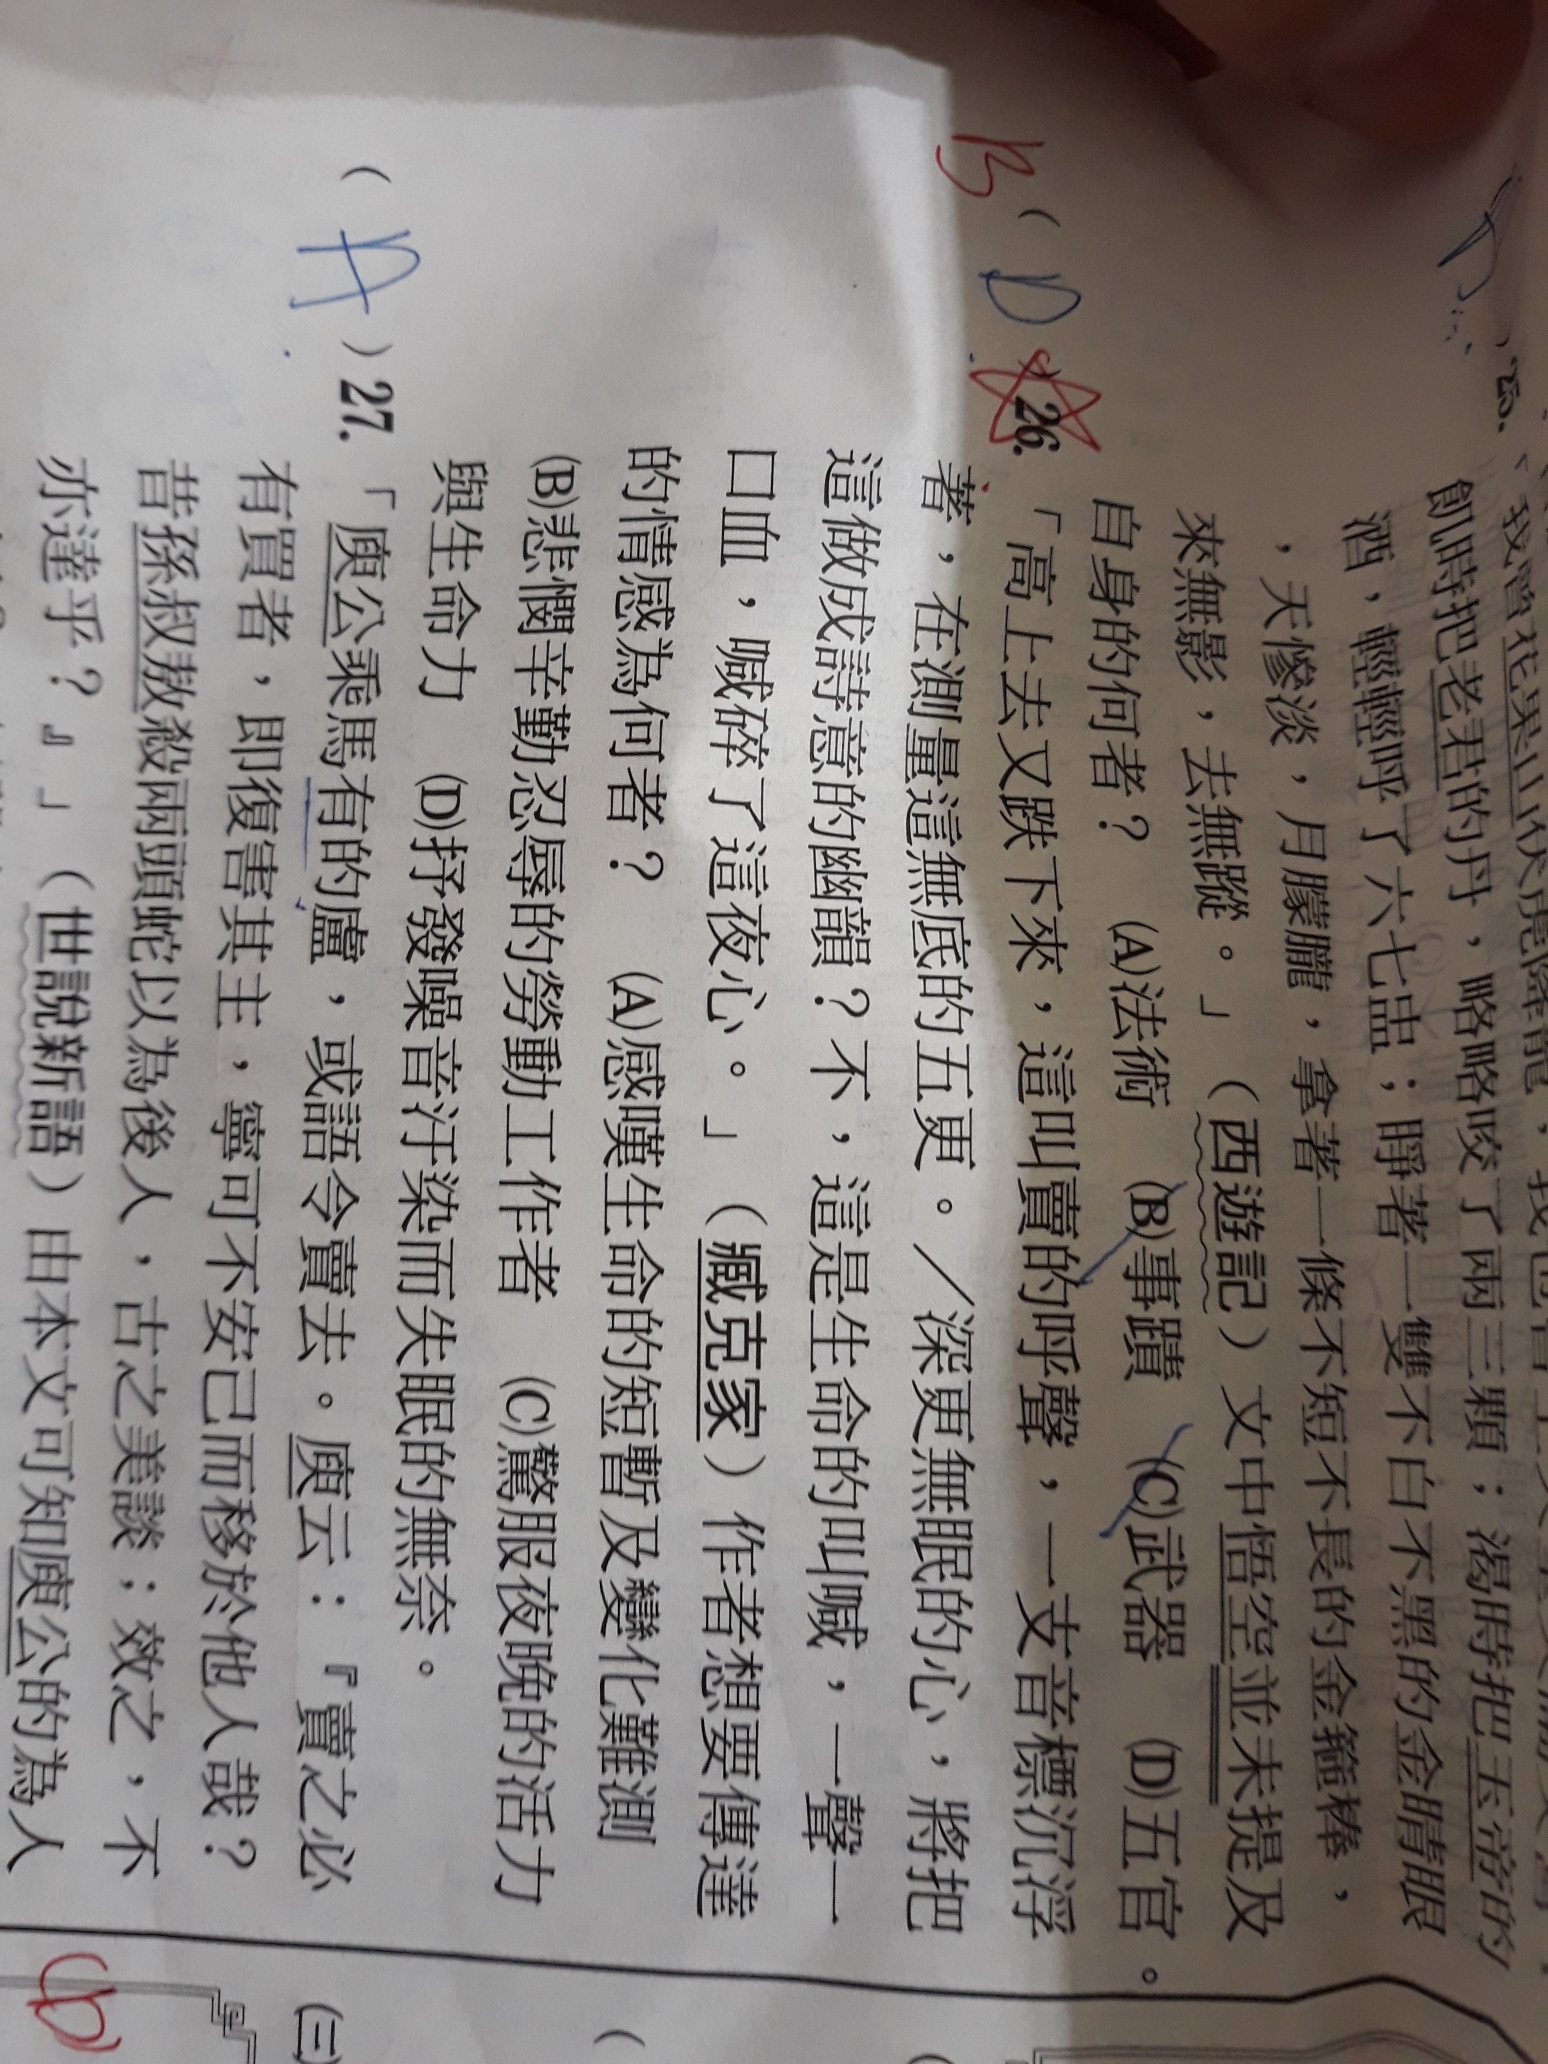 飢時把老君的丹，略略咬了兩三顆；渴時把玉帝的
酒，輕輕呼了六七盅；睜著一雙不白不黑的金睛眼
，天慘淡，月朦朧，拿著一條不短不長的金箍棒，
來無影，去無蹤。」（西遊記）文中悟空並未提及
自身的何者？ (A)法術 (B)事蹟 (C)武器 (D)五官。
B ( D ) 26. 「高上去又跌下來，這叫賣的呼聲，一支音標沉浮
著，在測量這無底的五更。／深更無眠的心，將把
這做成詩意的幽韻？不，這是生命的叫喊，一聲一
口血，喊碎了這夜心。」（臧克家）作者想要傳達
的情感為何者？ (A)感嘆生命的短暫及變化難測
(B)悲憫辛勤忍辱的勞動工作者 (C)驚服夜晚的活力
與生命力 (D)抒發噪音汙染而失眠的無奈。
( A ) 27. 「庾公乘馬有的盧，或語令賣去。庾云：『賣之必
有買者，即復害其主，寧可不安己而移於他人哉？
昔孫叔敖殺兩頭蛇以為後人，古之美談；效之，不
亦達乎？』」（世說新語）由本文可知庾公的為人
(三)